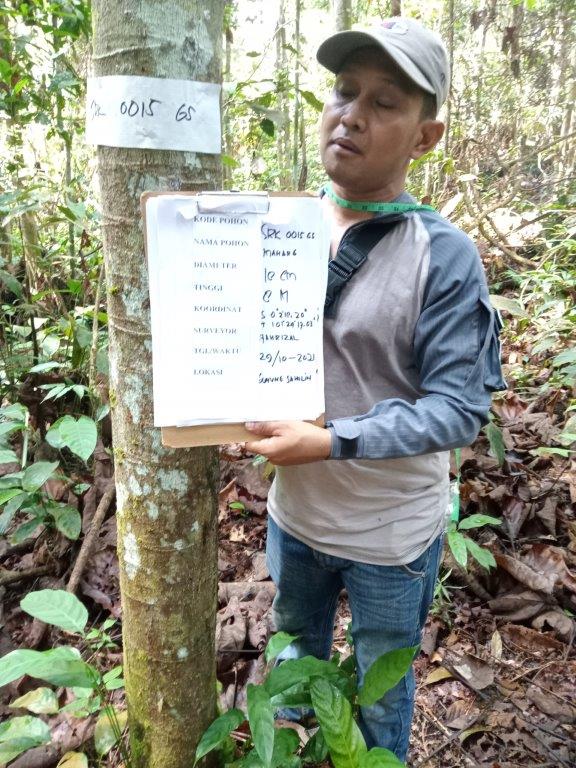 SRK 0015 GS
KODE POHON SRK 0015 GS
NAMA POHON MAHANG
DIAMETER 10 CM
TINGGI 8 M
KOORDINAT S 0°2'10.20"
T 101°20'17.03"
SURVEYOR FAHRIZAL
TGL/WAKTU 29/10-2021
LOKASI GUNUNG SAHILIN